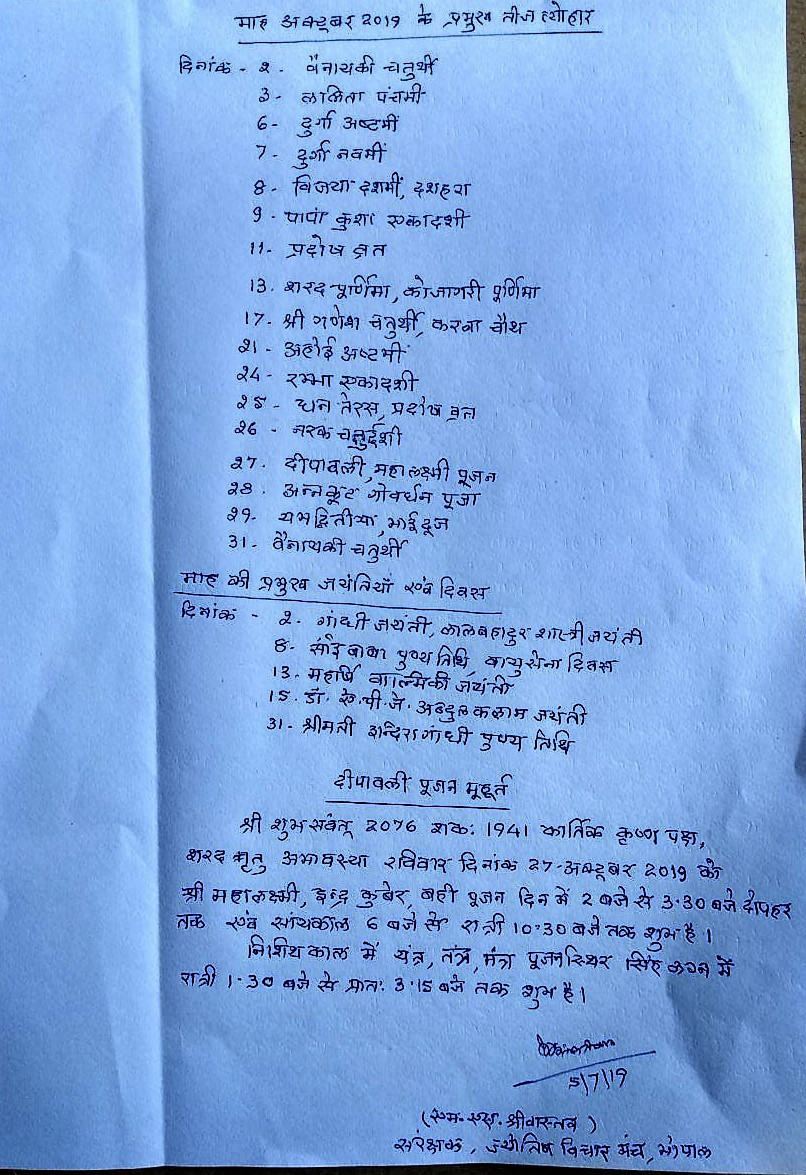 माह अक्टूबर 2019 के प्रमुख तीज त्योहार
दिनांक - 2 - वैनायकी चतुर्थी
3 - ललिता पंचमी
6 - दुर्गा अष्टमीं
7 - दुर्गा नवमीं
8 - विजया दशमीं, दशहरा
9 - पापां कुशा एकादशी
11 - प्रदोष व्रत
13. शरद पूर्णिमा, कोजागरी पूर्णिमा
17 - श्री गणेश चतुर्थी, करवा चौथ
21 - अहोई अष्टमीं
24 - रम्भा एकादशी
25 - धन तेरस, प्रदोष व्रत
26 - नरक चतुर्दशी
27. दीपावली, महालक्ष्मी पूजन
28. अन्नकूट गोवर्धन पूजा
29. यमद्वितीया, भाई दूज
31 - वैनायकी चतुर्थी
माह की प्रमुख जयंतियाँ एवं दिवस
दिनांक - 2 - गांधी जयंती, लालबहादुर शास्त्री जयंती
8 - सांई बाबा पुण्य तिथि, वायुसेना दिवस
13. महर्षि वाल्मिकी जयंती
15. डॉ. ए. पी. जे. अब्दुल कलाम जयंती
31 - श्रीमती इन्दिरा गांधी पुण्य तिथि
दीपावली पूजन मूहूर्त
श्री शुभ संवत् 2076 शक: 1941 कार्तिक कृष्ण पक्ष,
शरद ऋतु अमावस्या रविवार दिनांक 27-अक्टूबर 2019 को
श्री महालक्ष्मी, इन्द्र कुबेर, बही पूजन दिन में 2 बजे से 3:30 बजे दोपहर
तक एवं सांयकाल 6 बजे से रात्री 10:30 बजे तक शुभ है।
निशिथ काल में यंत्र, तंत्र, मंत्र पूजन स्थिर सिंह लग्न में
रात्री 1-30 बजे से प्रात: 3:15 बजे तक शुभ है।
5/7/19
(एम. एस. श्रीवास्तव)
संरक्षक, ज्योतिष विचार मंच, भोपाल